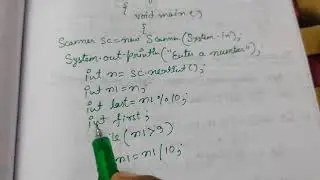 {
void main()
{
Scanner sc=new Scanner(System.in);
System.out.println("Enter a number");
int n= sc.nextInt();
int n1=n;
int last=n1%10;
int first;
(n1>9)
n1=n1/10;